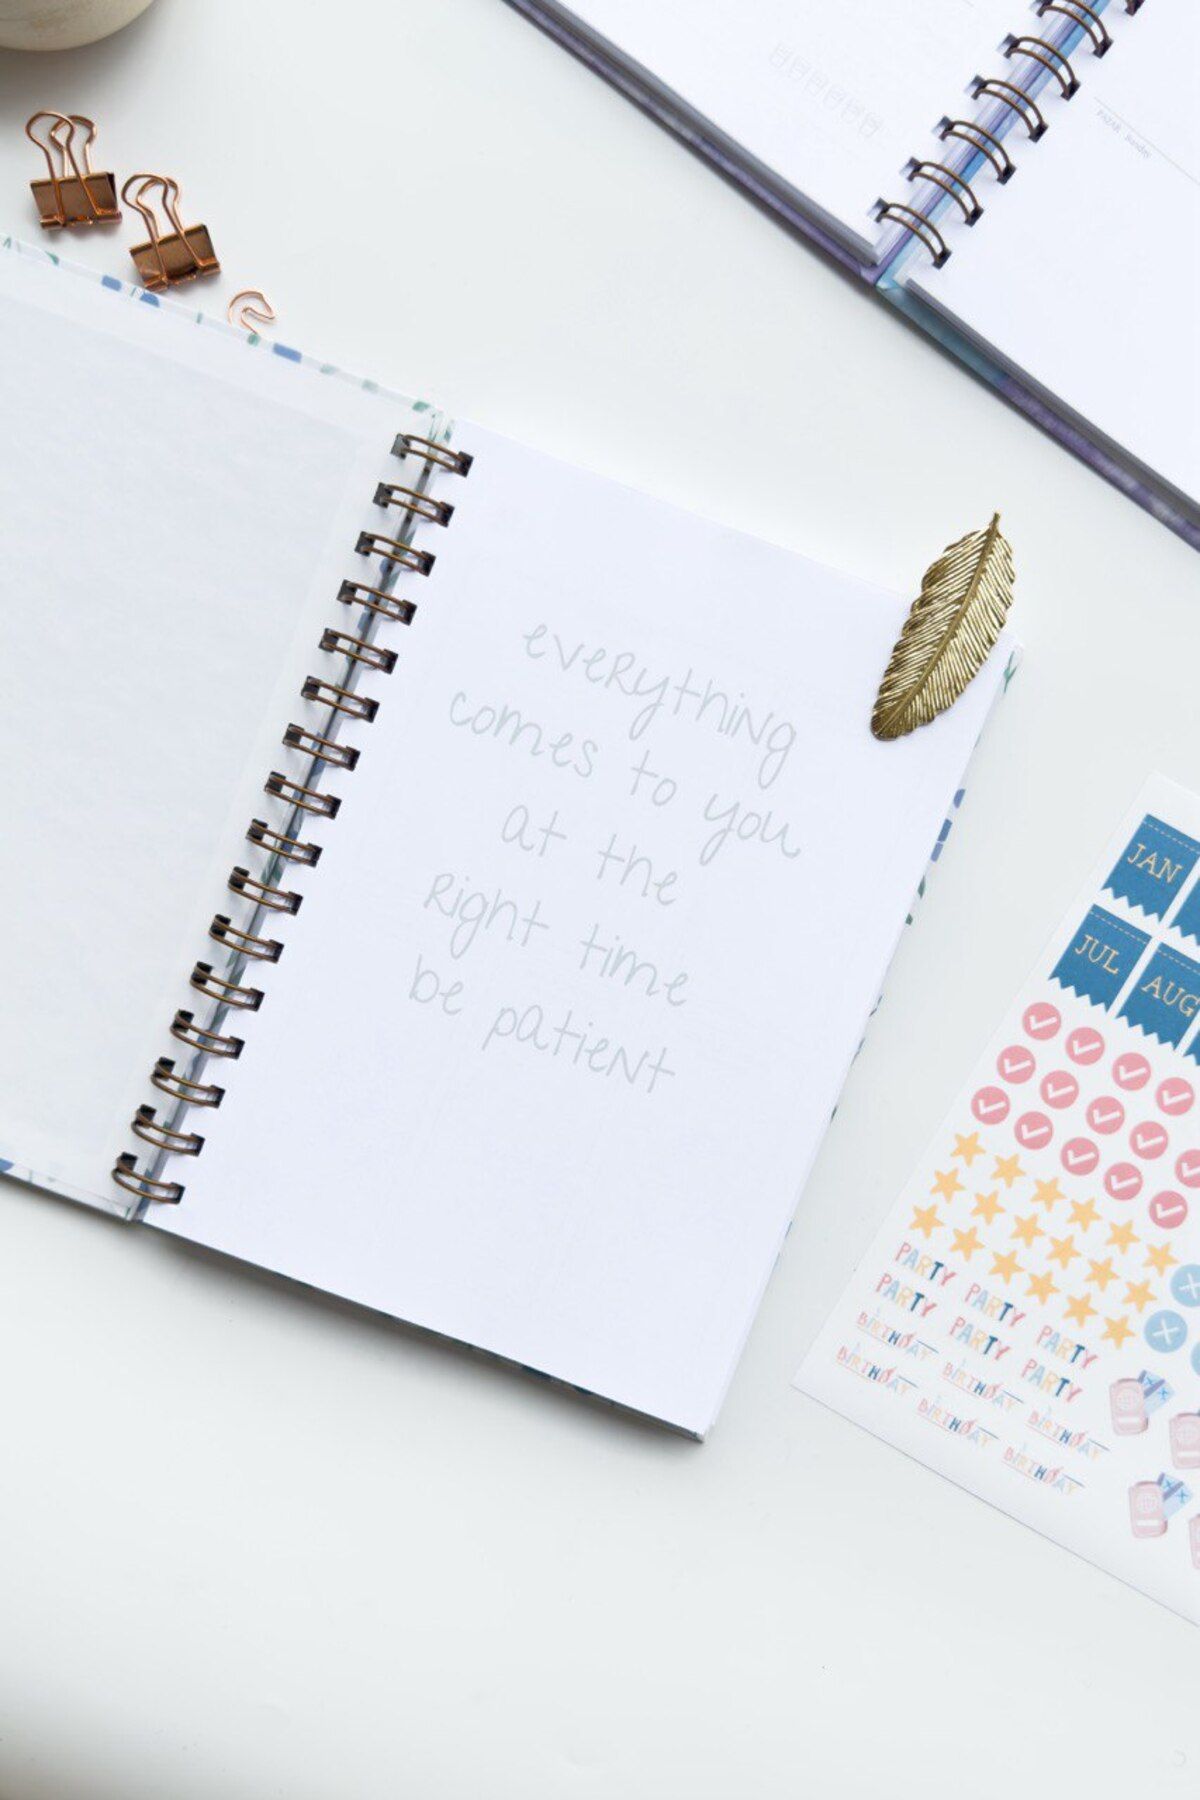 PAZAR Sunday
everything
comes to you
at the
right time
be patient
JAN
JUL AUG
PARTY PARTY PARTY
PARTY PARTY PARTY
BIRTHDAY BIRTHDAY BIRTHDAY
BIRTHDAY BIRTHDAY BIRTHDAY